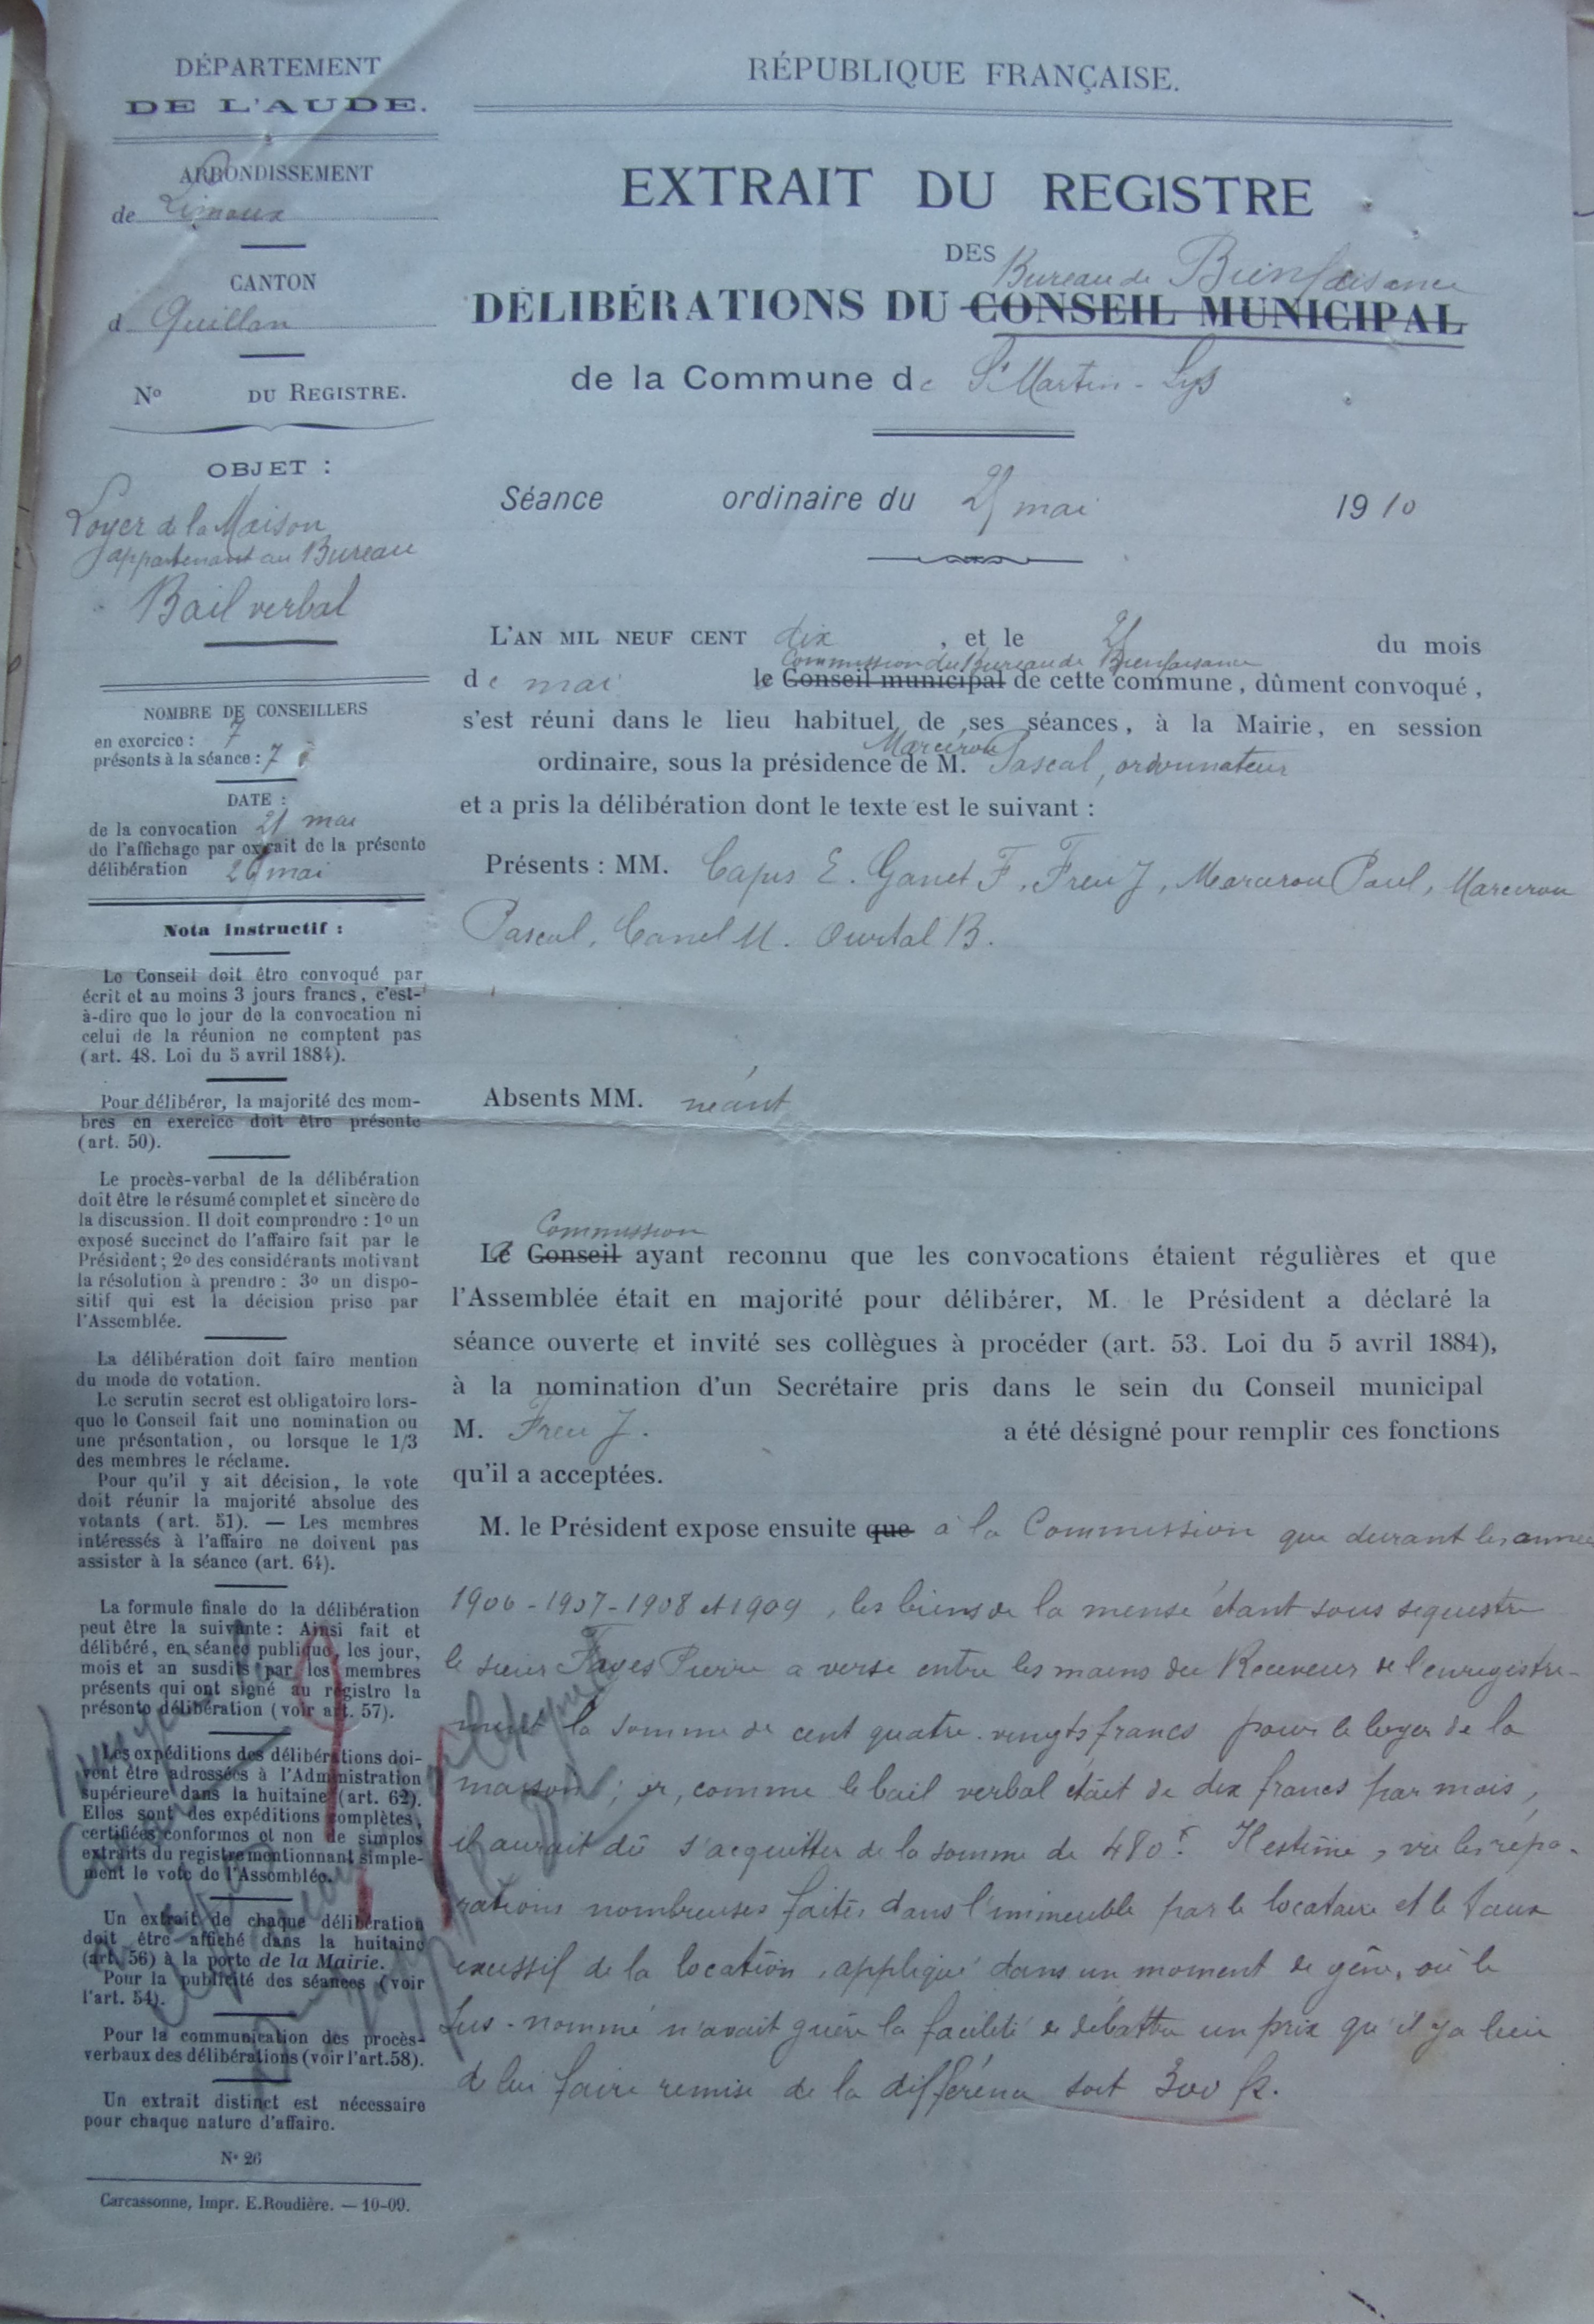 DÉPARTEMENT
DE L'AUDE.
ARRONDISSEMENT
de Limoux
CANTON
d Quillan
No DU REGISTRE.
OBJET :
Loyer de la Maison
appartenant au Bureau
Bail verbal
NOMBRE DE CONSEILLERS
en exercice : 7
présents à la séance : 7
DATE :
de la convocation 21 mai
de l'affichage par extrait de la présente
délibération 26 mai
Nota instructif :
Le Conseil doit être convoqué par
écrit et au moins 3 jours francs, c'est-
à-dire que le jour de la convocation ni
celui de la réunion ne comptent pas
(art. 48. Loi du 5 avril 1884).
Pour délibérer, la majorité des mem-
bres en exercice doit être présente
(art. 50).
Le procès-verbal de la délibération
doit être le résumé complet et sincère de
la discussion. Il doit comprendre : 1o un
exposé succinct de l'affaire fait par le
Président ; 2o des considérants motivant
la résolution à prendre : 3o un dispo-
sitif qui est la décision prise par
l'Assemblée.
La délibération doit faire mention
du mode de votation.
Le scrutin secret est obligatoire lors-
que le Conseil fait une nomination ou
une présentation, ou lorsque le 1/3
des membres le réclame.
Pour qu'il y ait décision, le vote
doit réunir la majorité absolue des
votants (art. 51). — Les membres
intéressés à l'affaire ne doivent pas
assister à la séance (art. 64).
La formule finale de la délibération
peut être la suivante : Ainsi fait et
délibéré, en séance publique, les jour,
mois et an susdits par les membres
présents qui ont signé au registre la
présente délibération (voir art. 57).
Les expéditions des délibérations doi-
vent être adressées à l'Administration
supérieure dans la huitaine (art. 62).
Elles sont des expéditions complètes,
certifiées conformes et non de simples
extraits du registre mentionnant simple-
ment le vote de l'Assemblée.
Un extrait de chaque délibération
doit être affiché dans la huitaine
(art. 56) à la porte de la Mairie.
Pour la publicité des séances (voir
l'art. 54).
Pour la communication des procès-
verbaux des délibérations (voir l'art. 58).
Un extrait distinct est nécessaire
pour chaque nature d'affaire.
No 26
Carcassonne, Impr. E. Roudière. — 10-09.
RÉPUBLIQUE FRANÇAISE.
EXTRAIT DU REGISTRE
DES
Bureau de Bienfaisance
DÉLIBÉRATIONS DU CONSEIL MUNICIPAL
de la Commune de St Martin-Lys
Séance ordinaire du mai 1910
L'AN MIL NEUF CENT dix, et le du mois
Commission du Bureau de Bienfaisance
de mai le Conseil municipal de cette commune, dûment convoqué,
s'est réuni dans le lieu habituel de ses séances, à la Mairie, en session
Marcerou
ordinaire, sous la présidence de M. Pascal, ordonnateur
et a pris la délibération dont le texte est le suivant :
Présents : MM. Capus E. Ganet F, Freu J, Marcerou Paul, Marcerou
Pascal, Canel M. Ourtal B.
Absents MM. néant
Commission
Le Conseil ayant reconnu que les convocations étaient régulières et que
l'Assemblée était en majorité pour délibérer, M. le Président a déclaré la
séance ouverte et invité ses collègues à procéder (art. 53. Loi du 5 avril 1884),
à la nomination d'un Secrétaire pris dans le sein du Conseil municipal
M. Freu J. a été désigné pour remplir ces fonctions
qu'il a acceptées.
M. le Président expose ensuite que à la Commission que durant les années
1906-1907-1908 et 1909, les biens de la mense étant sous sequestre
le sieur Pierre a versé entre les mains du Receveur de l'enregistre-
ment la somme de cent quatre-vingts francs pour le loyer de la
maison ; or, comme le bail verbal était de dix francs par mois,
il aurait dû s'acquitter de la somme de 480f. Il estime, vu les répa-
rations nombreuses faites dans l'immeuble par le locataire et le taux
excessif de la location, appliqué dans un moment de gêne, où le
sus-nommé n'avait guère la facilité de débattre un prix qu'il y a lieu
de lui faire remise de la différence soit 300 fr.